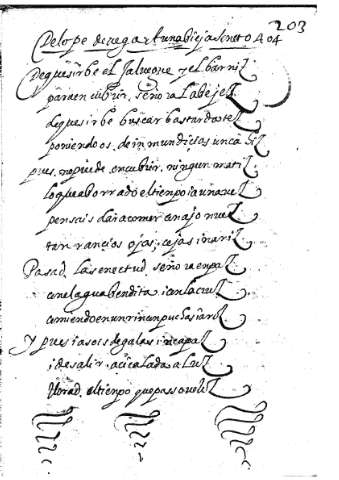 203
De lope de uega A una bieja soneto 404
De que sirbe el Jaluegue y el barniz
para encubrir, señora la bejez
de que sirbe buscar bastarda tez
poniendoos, de inmundicias un ca
pues, no puede, encubrir, ningun matiz
lo que a borrado el tiempo ia una uez
pensais dar a comer anajo nuez
tan rancios ojos, cejas i nariz
Pasad. la senectud. señora en paz
con el agua bendita i con la cruz
comiendo en un rincon pues
Y pues ia sois de galas incapaz
i de salir. acicalada a luz
llorad. el tienpo que paso ueloz